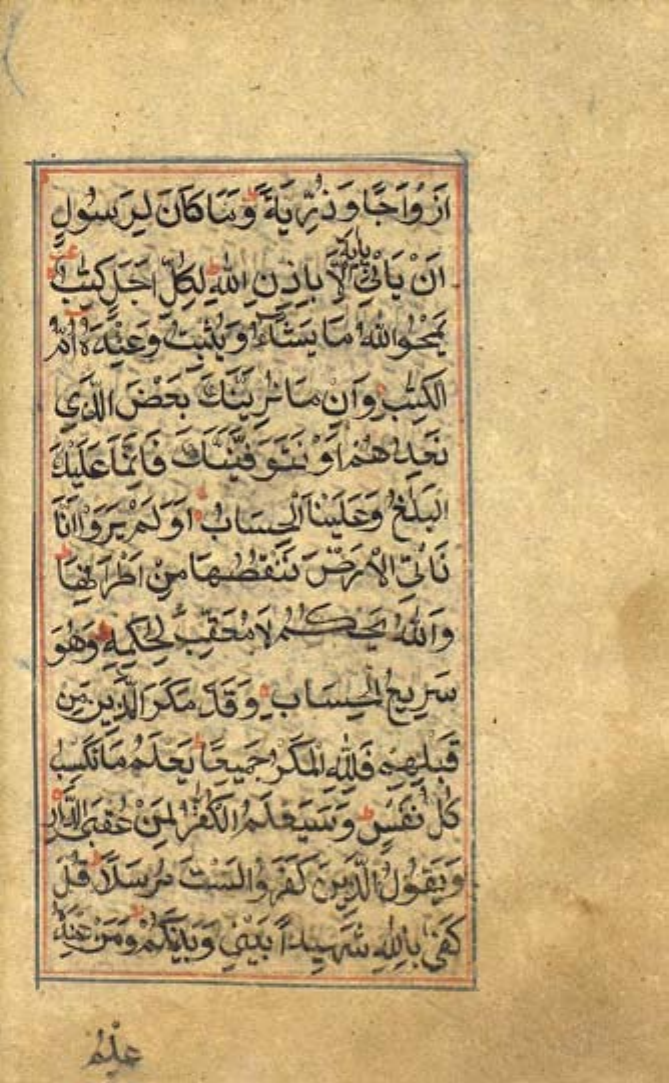 اَزْوَاجًا وَذُرِّيَةً وَمَا كَانَ لِرَسُولٍ
اَنْ يَاْتِيَ بِاٰيَةٍ اِلَّا بِاِذْنِ اللّٰهِ لِكُلِّ اَجَلٍ كِتٰبٌ
يَمْحُوا اللّٰهُ مَا يَشَآءُ وَيُثْبِتُ وَعِنْدَهٗٓ اُمُّ
الْكِتٰبِ وَاِنْ مَا نُرِيَنَّكَ بَعْضَ الَّذِي
نَعِدُهُمْ اَوْ نَتَوَفَّيَنَّكَ فَاِنَّمَا عَلَيْكَ
الْبَلٰغُ وَعَلَيْنَا الْحِسَابُ اَوَلَمْ يَرَوْا اَنَّا
نَاْتِي الْاَرْضَ نَنْقُصُهَا مِنْ اَطْرَافِهَا
وَاللّٰهُ يَحْكُمُ لَا مُعَقِّبَ لِحُكْمِهٖ وَهُوَ
سَرِيعُ الْحِسَابِ وَقَدْ مَكَرَ الَّذِينَ مِنْ
قَبْلِهِمْ فَلِلّٰهِ الْمَكْرُ جَمِيعًا يَعْلَمُ مَا تَكْسِبُ
كُلُّ نَفْسٍ وَسَيَعْلَمُ الْكُفّٰرُ لِمَنْ عُقْبَى الدَّارِ
وَيَقُولُ الَّذِينَ كَفَرُوا لَسْتَ مُرْسَلًا قُلْ
كَفٰى بِاللّٰهِ شَهِيدًا بَيْنِي وَبَيْنَكُمْ وَمَنْ عِنْدَهٗ
عِلْمُ